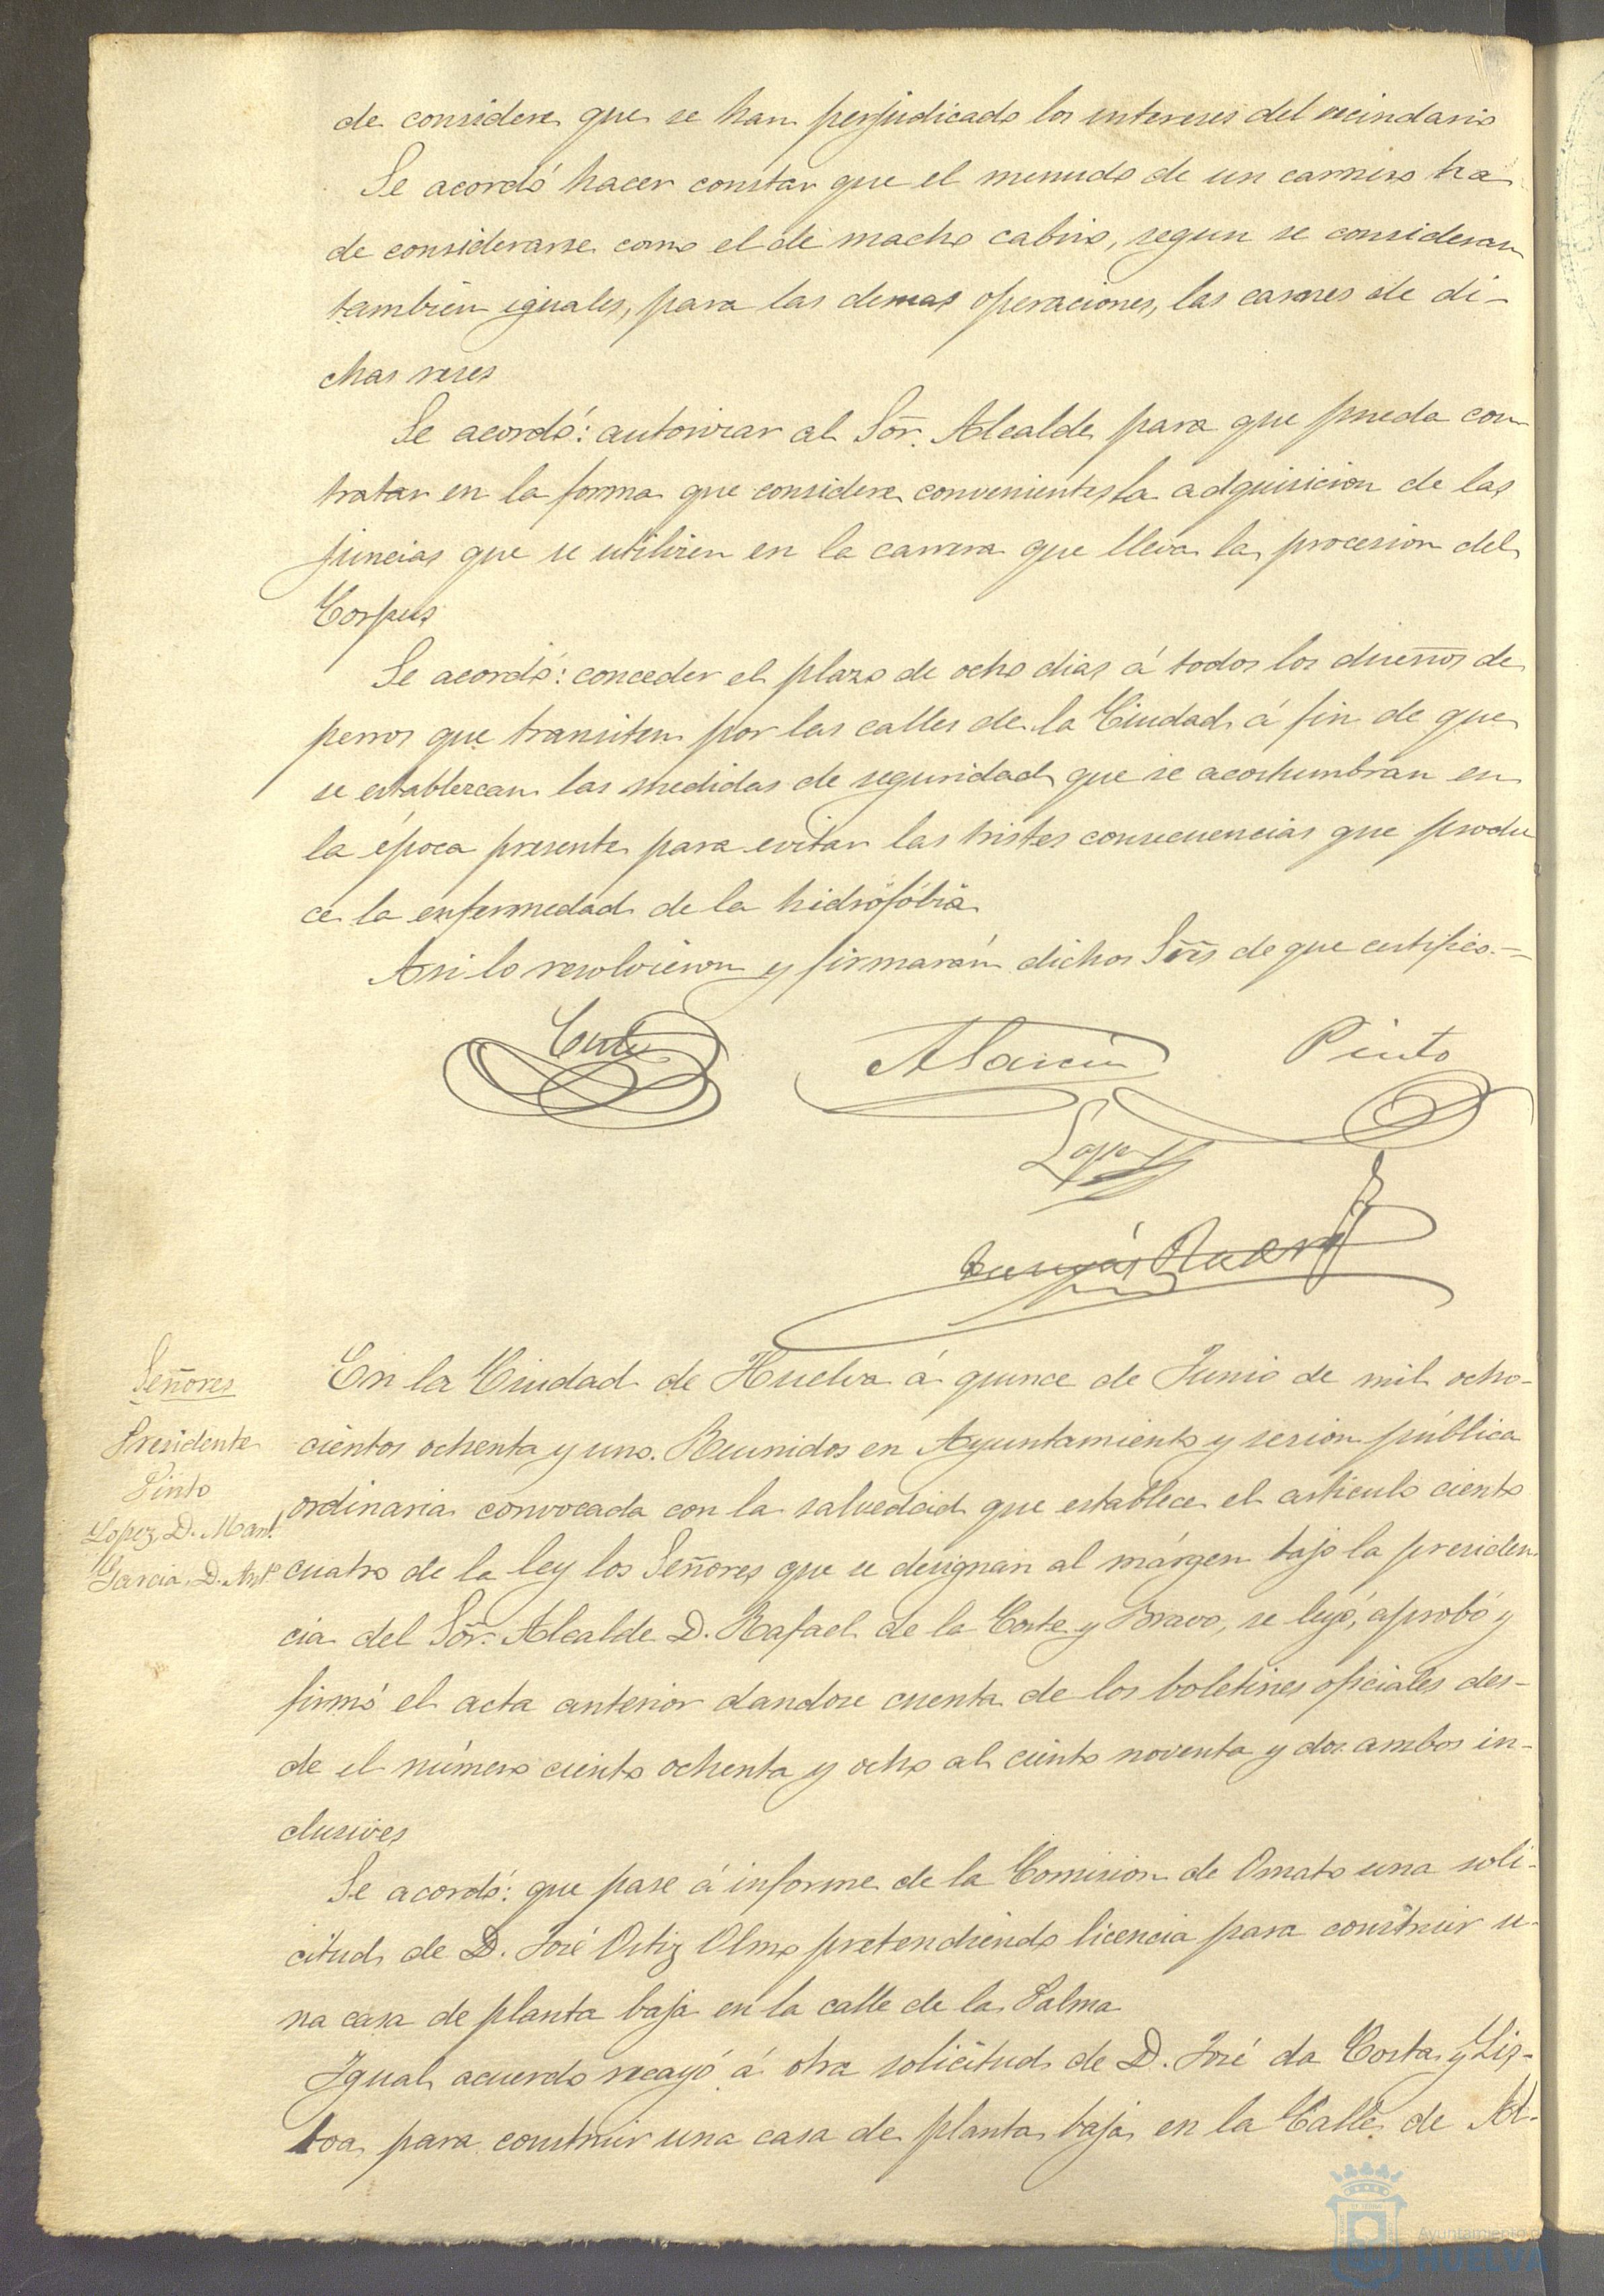 de considere que se han perjudicado los intereses del vecindario
Se acordó hacer constar que el menudo de un carnero ha
de considerarse como el de macho cabrio, segun se consideran
tambien iguales, para las demas operaciones, las carnes de di-
chas reses
Se acordó: autorizar al Sõr. Alcalde para que pueda con
tratar en la forma que considere conveniente, la adquisicion de las
juncias que se utilizen en la carrera que lleva la procesion del
Corpus
Se acordó: conceder el plazo de ocho dias á todos los dueños de
perros que transiten por las calles de la Ciudad á fin de que
se establezcan las medidas de seguridad que se acostumbran en
la época presente para evitar las tristes consecuencias que produ
ce la enfermedad de la hidrofóbia
Asi lo resolvieron y firmarán dichos Sres de que certifico.=
Corte
A Garcia
Pinto
Lopez
En la Ciudad de Huelva á quince de Junio de mil ocho-
cientos ochenta y uno. Reunidos en Ayuntamiento y sesion pública
ordinaria convocada con la salvedad que establece el articulo ciento
cuatro de la ley los Señores que se designan al márgen bajo la presiden
cia del Sõr. Alcalde D. Rafael de la Corte y Bravo, se leyó, aprobó y
firmó el acta anterior dandose cuenta de los boletines oficiales des-
de el número ciento ochenta y ocho al ciento noventa y dos ambos in-
clusives
Se acordó: que pase á informe de la Comision de Ornato una soli-
citud de D. José Ortiz Olmo pretendiendo licencia para construir u-
na casa de planta baja en la calle de la Palma
Igual acuerdo recayó á otra solicitud de D. José da Costa y Lis-
boa para construir una casa de planta baja en la Calle de Al-
Señores
Presidente
Pinto
Lopez, D. Man.l
Garcia, D. Ant.o
Ayuntamiento de
HUELVA